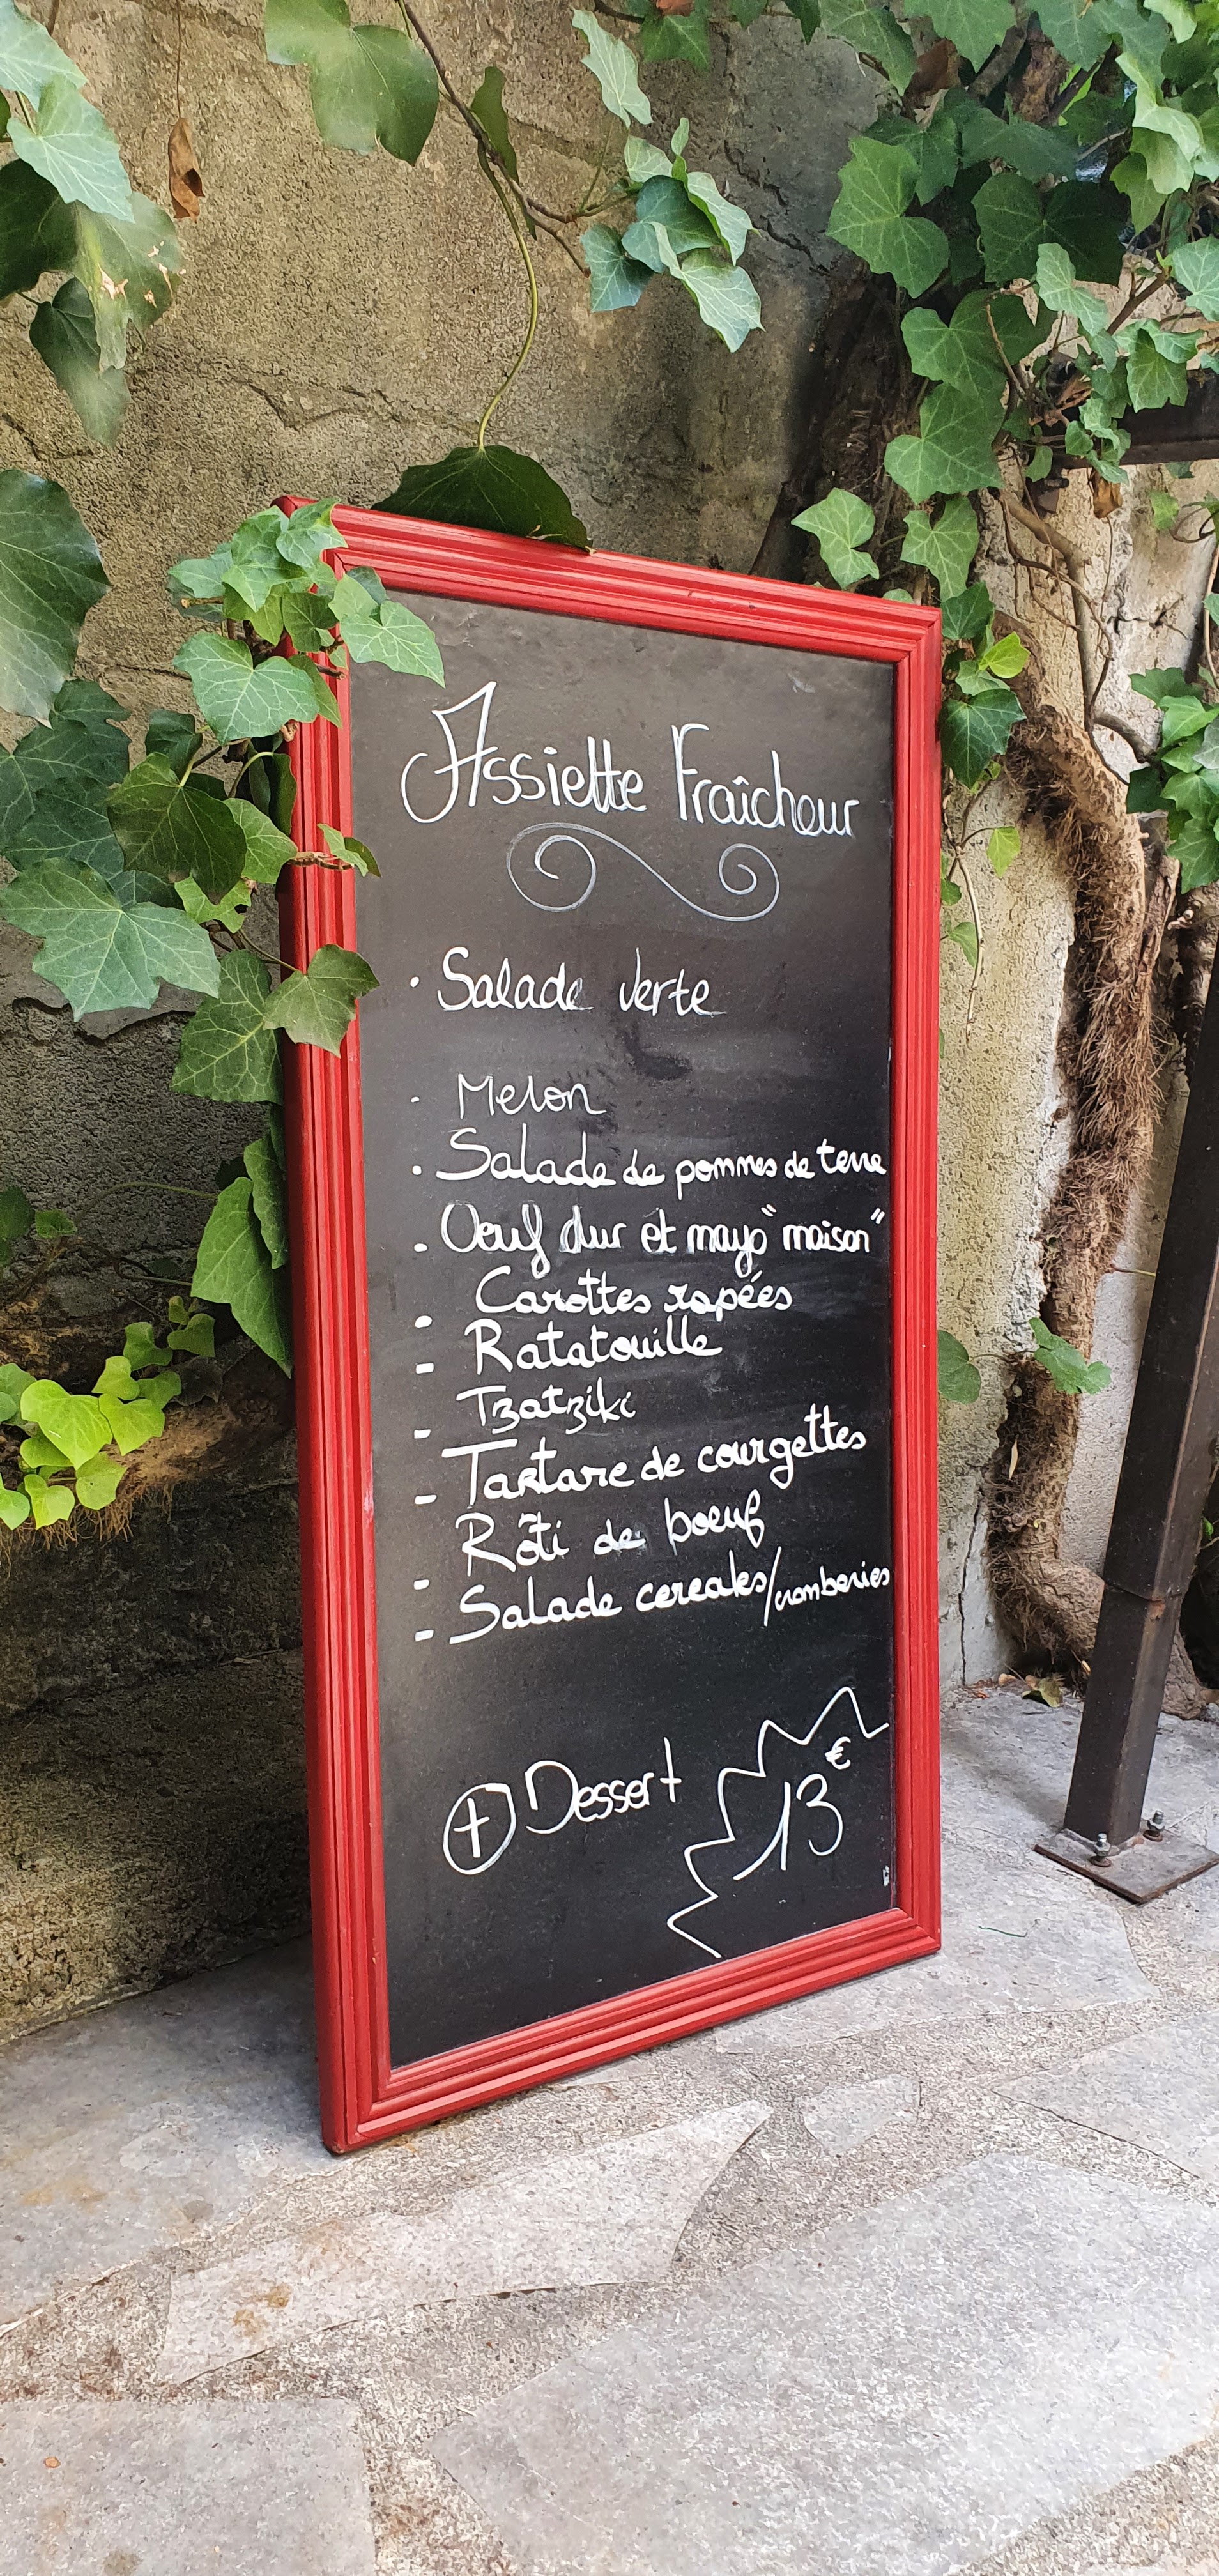 Assiette Fraîcheur
· Salade verte
· Melon
· Salade de pommes de terre
- Oeuf dur et mayo "maison"
- Carottes rapées
- Ratatouille
- Tzatziki
- Tartare de courgettes
- Rôti de boeuf
- Salade cereales/cramberies
+ Dessert
13€